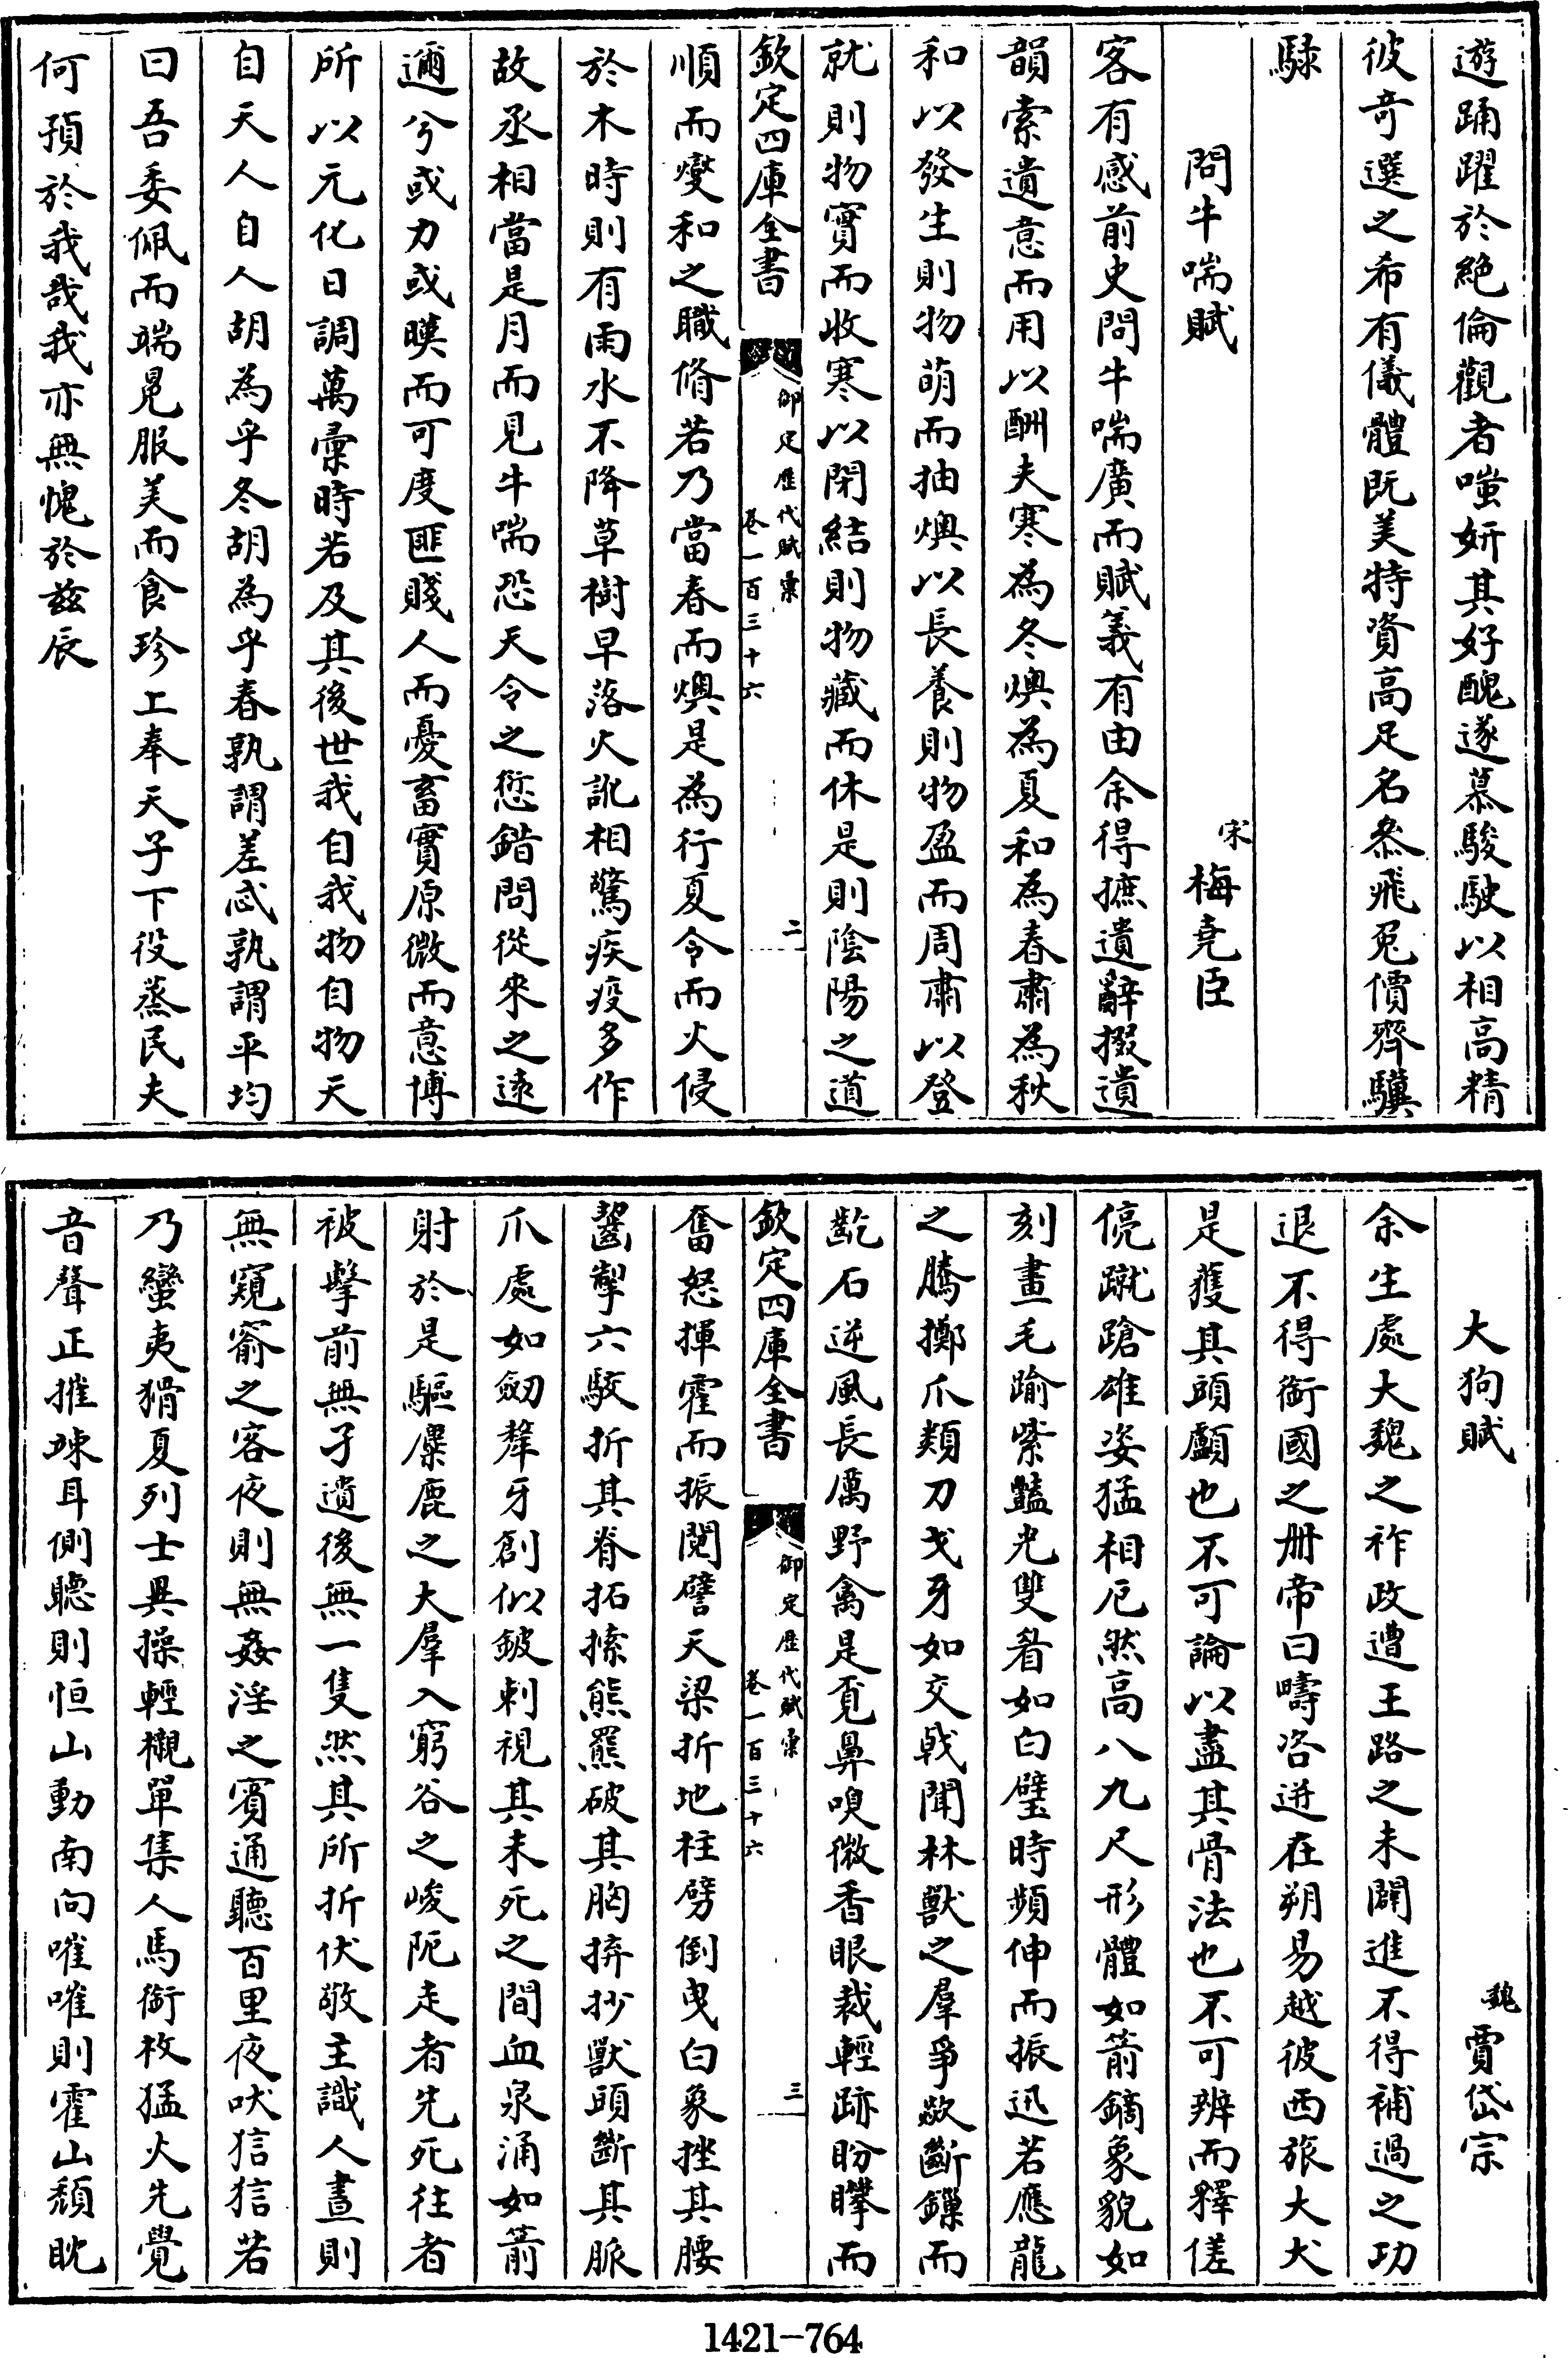 遊踊躍於絶倫觀者嗤妍其好醜遂慕駿駛以相高精
彼奇選之希有儀體既美特資高足名叅飛兎價齊驥
騄
問牛喘賦
宋
梅堯臣
客有感前史問牛喘廣而賦義有由余得摭遺辭掇遺
韻索遺意而用以酬夫寒為冬燠為夏和為春肅為秋
和以發生則物萌而抽燠以長養則物盈而周肅以登
就則物實而收寒以閉結則物藏而休是則陰陽之道
欽定四庫全書
御定歷代賦彙
卷一百三十六
二
順而燮和之職脩若乃當春而燠是為行夏令而火侵
於木時則有雨水不降草樹早落火訛相驚疾疫多作
故丞相當是月而見牛喘恐天令之愆錯問從來之遠
邇兮或力或暵而可度匪賤人而憂畜實原微而意博
所以元化日調萬彙時若及其後世我自我物自物天
自天人自人胡為乎冬胡為乎春孰謂差忒孰謂平均
曰吾委佩而端冕服美而食珍上奉天子下役蒸民夫
何預於我哉我亦無愧於兹辰
大狗賦
魏
賈岱宗
余生處大魏之祚政遭王路之未闢進不得補過之功
退不得銜國之冊帝曰疇咨迸在朔易越彼西旅大犬
是獲其頭顱也不可論以盡其骨法也不可辨而釋傞
傹蹴蹌雄姿猛相卮然高八九尺形體如箭鏑象貌如
刻畫毛踰紫豔光雙眷如白璧時頻伸而振迅若應龍
之騰擲爪類刀戈牙如交戟聞林獸之羣爭歘斷鏁而
齕石逆風長厲野禽是覔鼻嗅微香眼裁輕跡盼矆而
欽定四庫全書
御定歷代賦彙
卷一百三十六
三
奮怒揮霍而振䦧譬天梁折地柱劈倒曳白象挫其腰
齧掣六駮折其脊拓搸熊羆破其胸捹抄獸頭斷其脈
爪處如劒犛牙創似鈹刺視其未死之間血泉涌如箭
射於是驅麋鹿之大羣入窮谷之峻阨走者先死往者
被擊前無孑遺後無一隻然其所折伏敬主識人晝則
無窺窬之客夜則無姦淫之賓通聽百里夜吠狺狺若
乃蠻夷猾夏列士異操輕櫬單集人馬銜枚猛火先覺
音聲正摧竦耳側聽則恒山動南向嗺嗺則霍山頽眈
1421-764